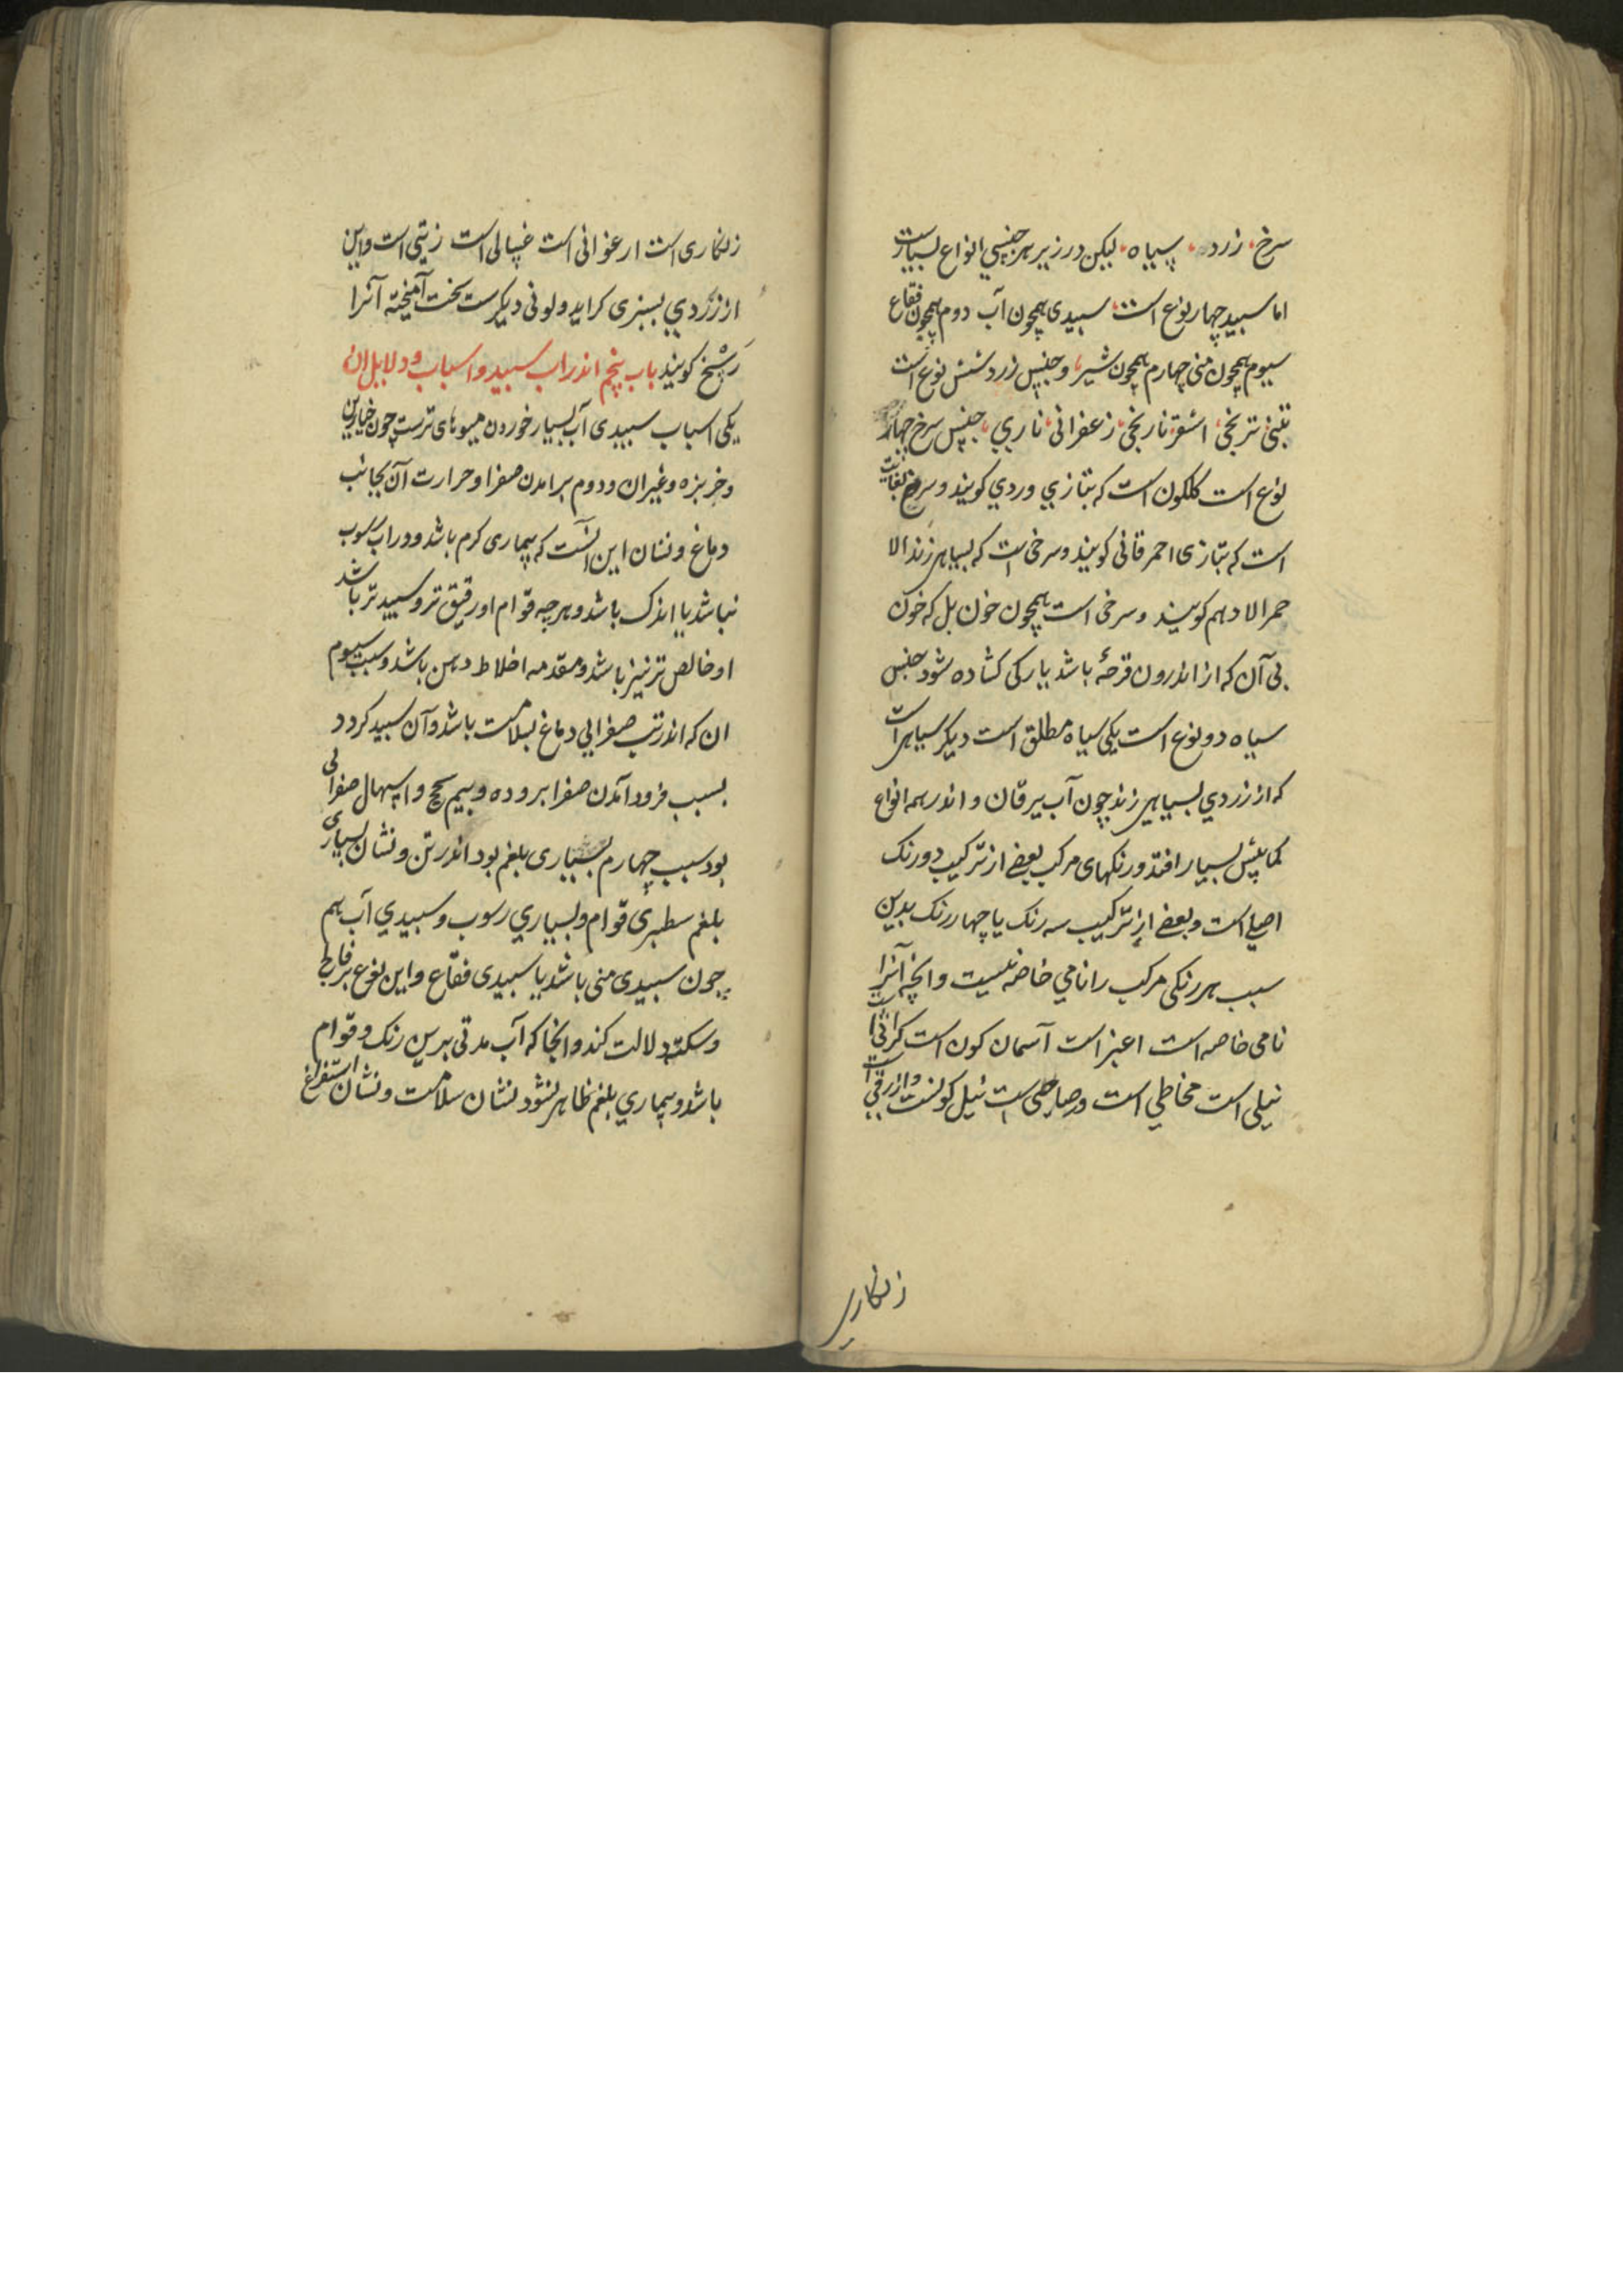 سرخ، زرد، سیاه، لیکن در زیر هر جنسی انواع بسیارست
اما سبید چهار نوع است، سبیدی همچون آب دوم همچون فقاع
سیوم همچون منی چهارم همچون شیر، و جنس زرد شش نوع است
تبنی، ترنجی، اشقر، نارنجی، زعفرانی، ناری، جنس سرخ چهار
نوع است کلکون است که بتازی وردی کویند و سرخ بغایت
است که بتازی احمر قانی کویند و سرخی است که بسیاهی زند الا
حمر الادهم کویند و سرخی است همچون خون بل که خون
بی آن که از اندرون قرحهٔ باشد یا رکی کشاده شود جنس
سیاه دو نوع است یکی سیاه مطلق است دیکر سیاهی است
که از زردی بسیاهی زند چون آب یرقان و اندر همه انواع
کمابیش بسیار افتد و رنکهای مرکب بعضی از ترکیب دو رنک
اصلی است و بعضی از ترکیب سه رنک یا چهار رنک بدین
سبب هر رنکی مرکب را نامی خاصه نیست و انچه آنرا
نامی خاصه است اغبر است آسمان کون است کراثی است
نیلی است مخاطی است و رصاصی است نیل کونست و ازرقی است
زنکاری
زنکاری است ارغوانی است غسالی است زیتی است و این
از زردی بسبزی کراید و لونی دیکرست سخت آمیخته آنرا
رشخ کویند باب پنجم اندر اب سبید و اسباب و دلایل ان
یکی اسباب سبیدی آب بسیار خوردن میوهای ترست چون خیارین
و خربزه و غیر ان و دوم برامدن صفرا و حرارت آن بجانب
دماغ و نشان این آنست که بیماری کرم باشد و در اب رسوب
نباشد یا اندک باشد و هر چه قوام او رقیق تر و سبید تر باشد
او خالص تر نیز باشد و مقدمه اخلاط دهن باشد و سبب سیوم
ان که اندر تب صفرایی دماغ بسلامت باشد و آن سبید کردد
بسبب فرود آمدن صفرا بروده و بیم سحج و اسهال صفرائی
بود سبب چهارم بسیاری بلغم بود اندر تن و نشان بسیاری
بلغم سطبری قوام و بسیاری رسوب و سبیدی آب هم
چون سبیدی منی باشد یا سبیدی فقاع و این نوع بر فالج
و سکته دلالت کند و انجا که آب مدتی برین رنک و قوام
باشد و بیماری بلغم ظاهر نشود نشان سلامت و نشان استفراغ